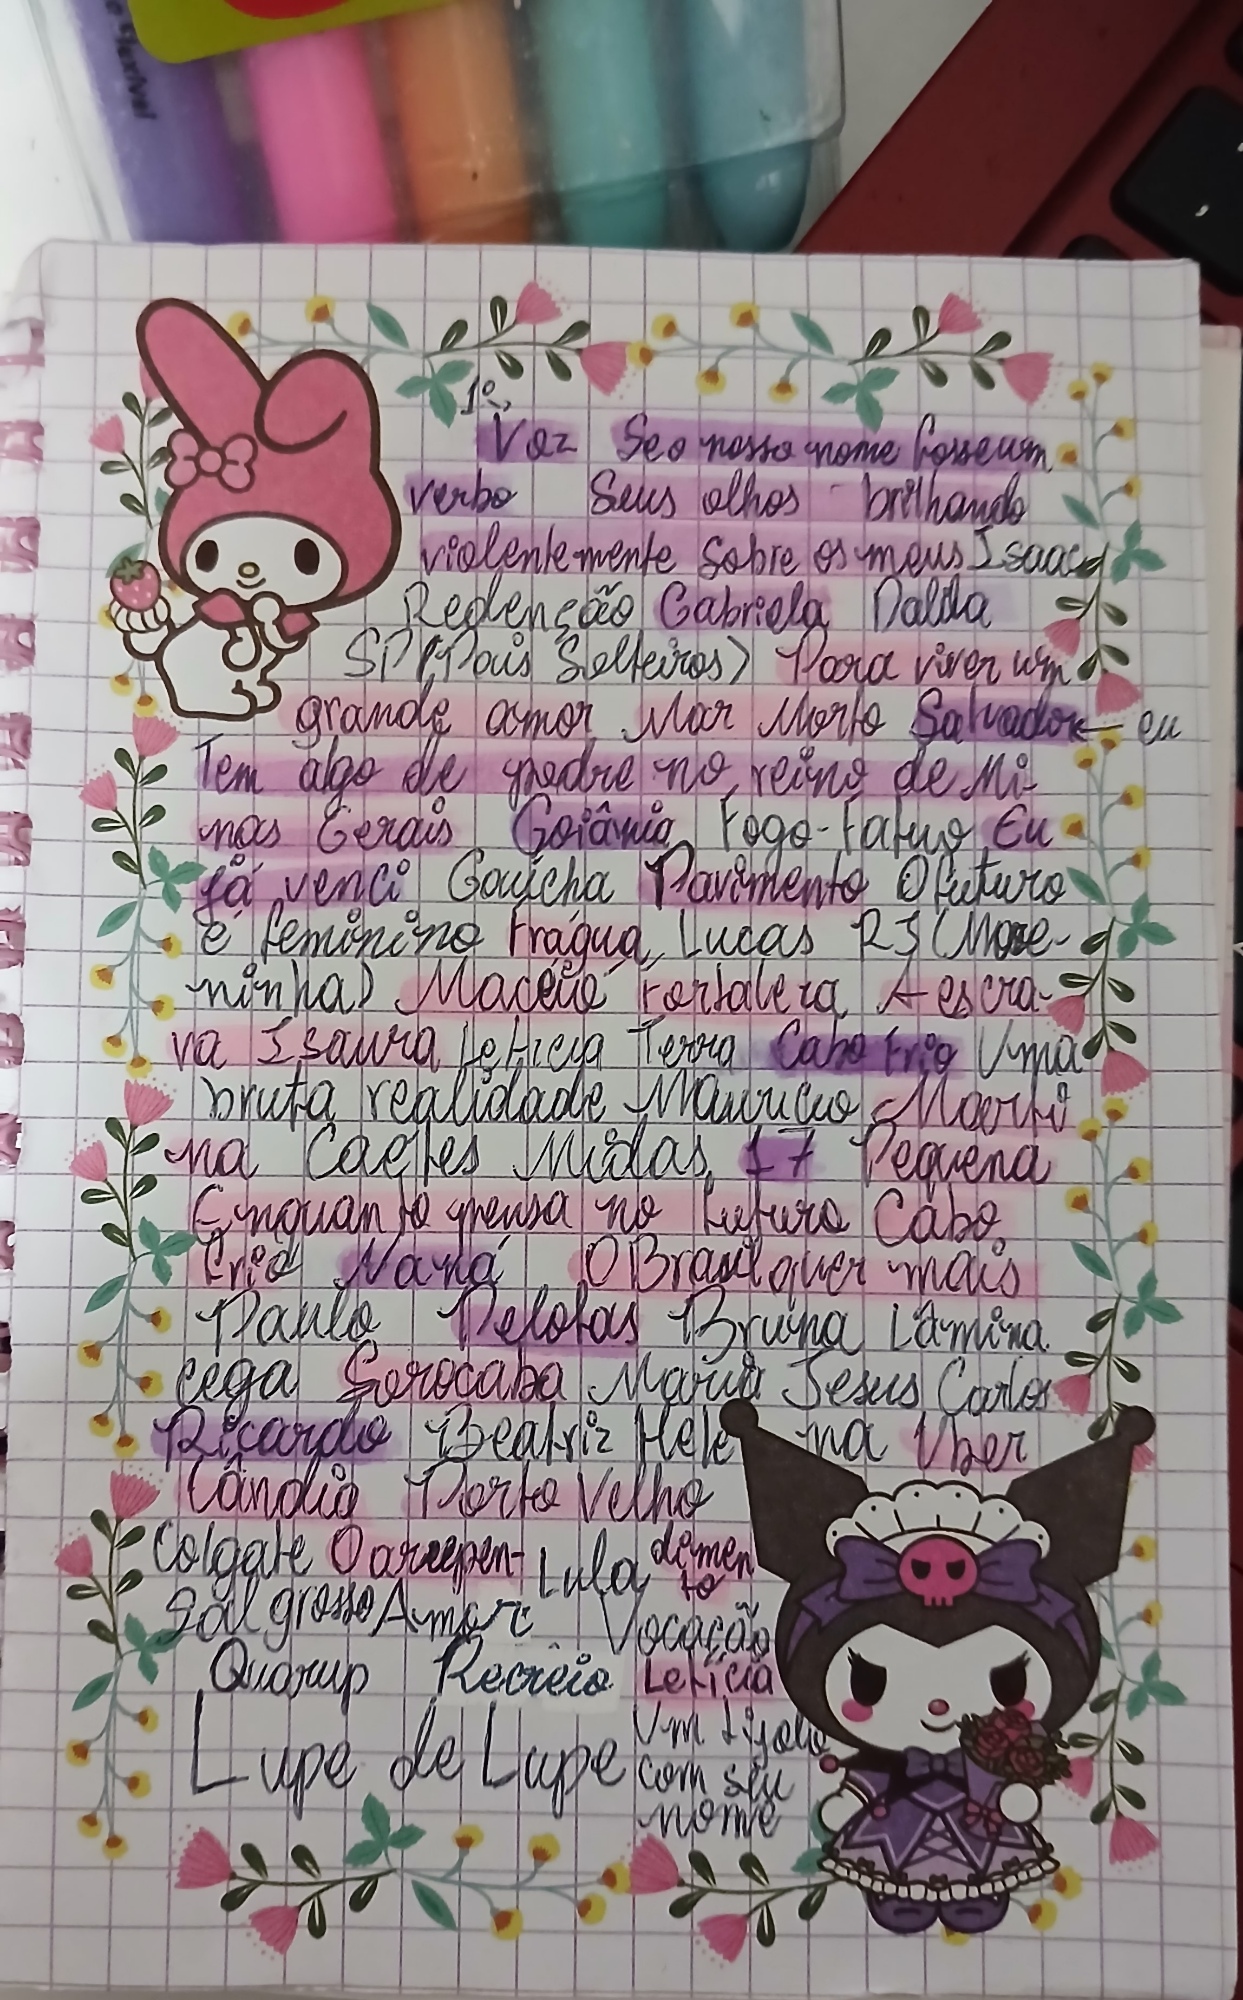 1º
Voz Se o nosso nome fosse um
verbo Seus olhos brilhando
violentemente sobre os meus Isaac
Redenção Gabriela Dalila
SP (Pais Solteiros) Para viver um
grande amor Mar Morto Salvador eu
Tem algo de podre no reino de Mi-
nas Gerais Goiânia Fogo-Fatuo Eu
já venci Gaúcha Pavimento O futuro
é feminino Frágua Lucas RJ (More-
ninha) Maceió Fortaleza A escra-
va Isaura Letícia Terra Cabo Frio Uma
bruta realidade Maurício Marti
na Caetés Midas 17 Pequena
Enquanto pensa no futuro Cabo
Frio Naná O Brasil quer mais
Paulo Pelotas Bruna Lâmina
cega Sorocaba Maria Jesus Carlos
Ricardo Beatriz Hele na Uber
lândia Porto Velho
Colgate O arrepen- Lula dimen
to
Sal grosso Amor Vocação
Quarup Recreio Letícia
Lupe de Lupe Um tijolo
com seu
nome